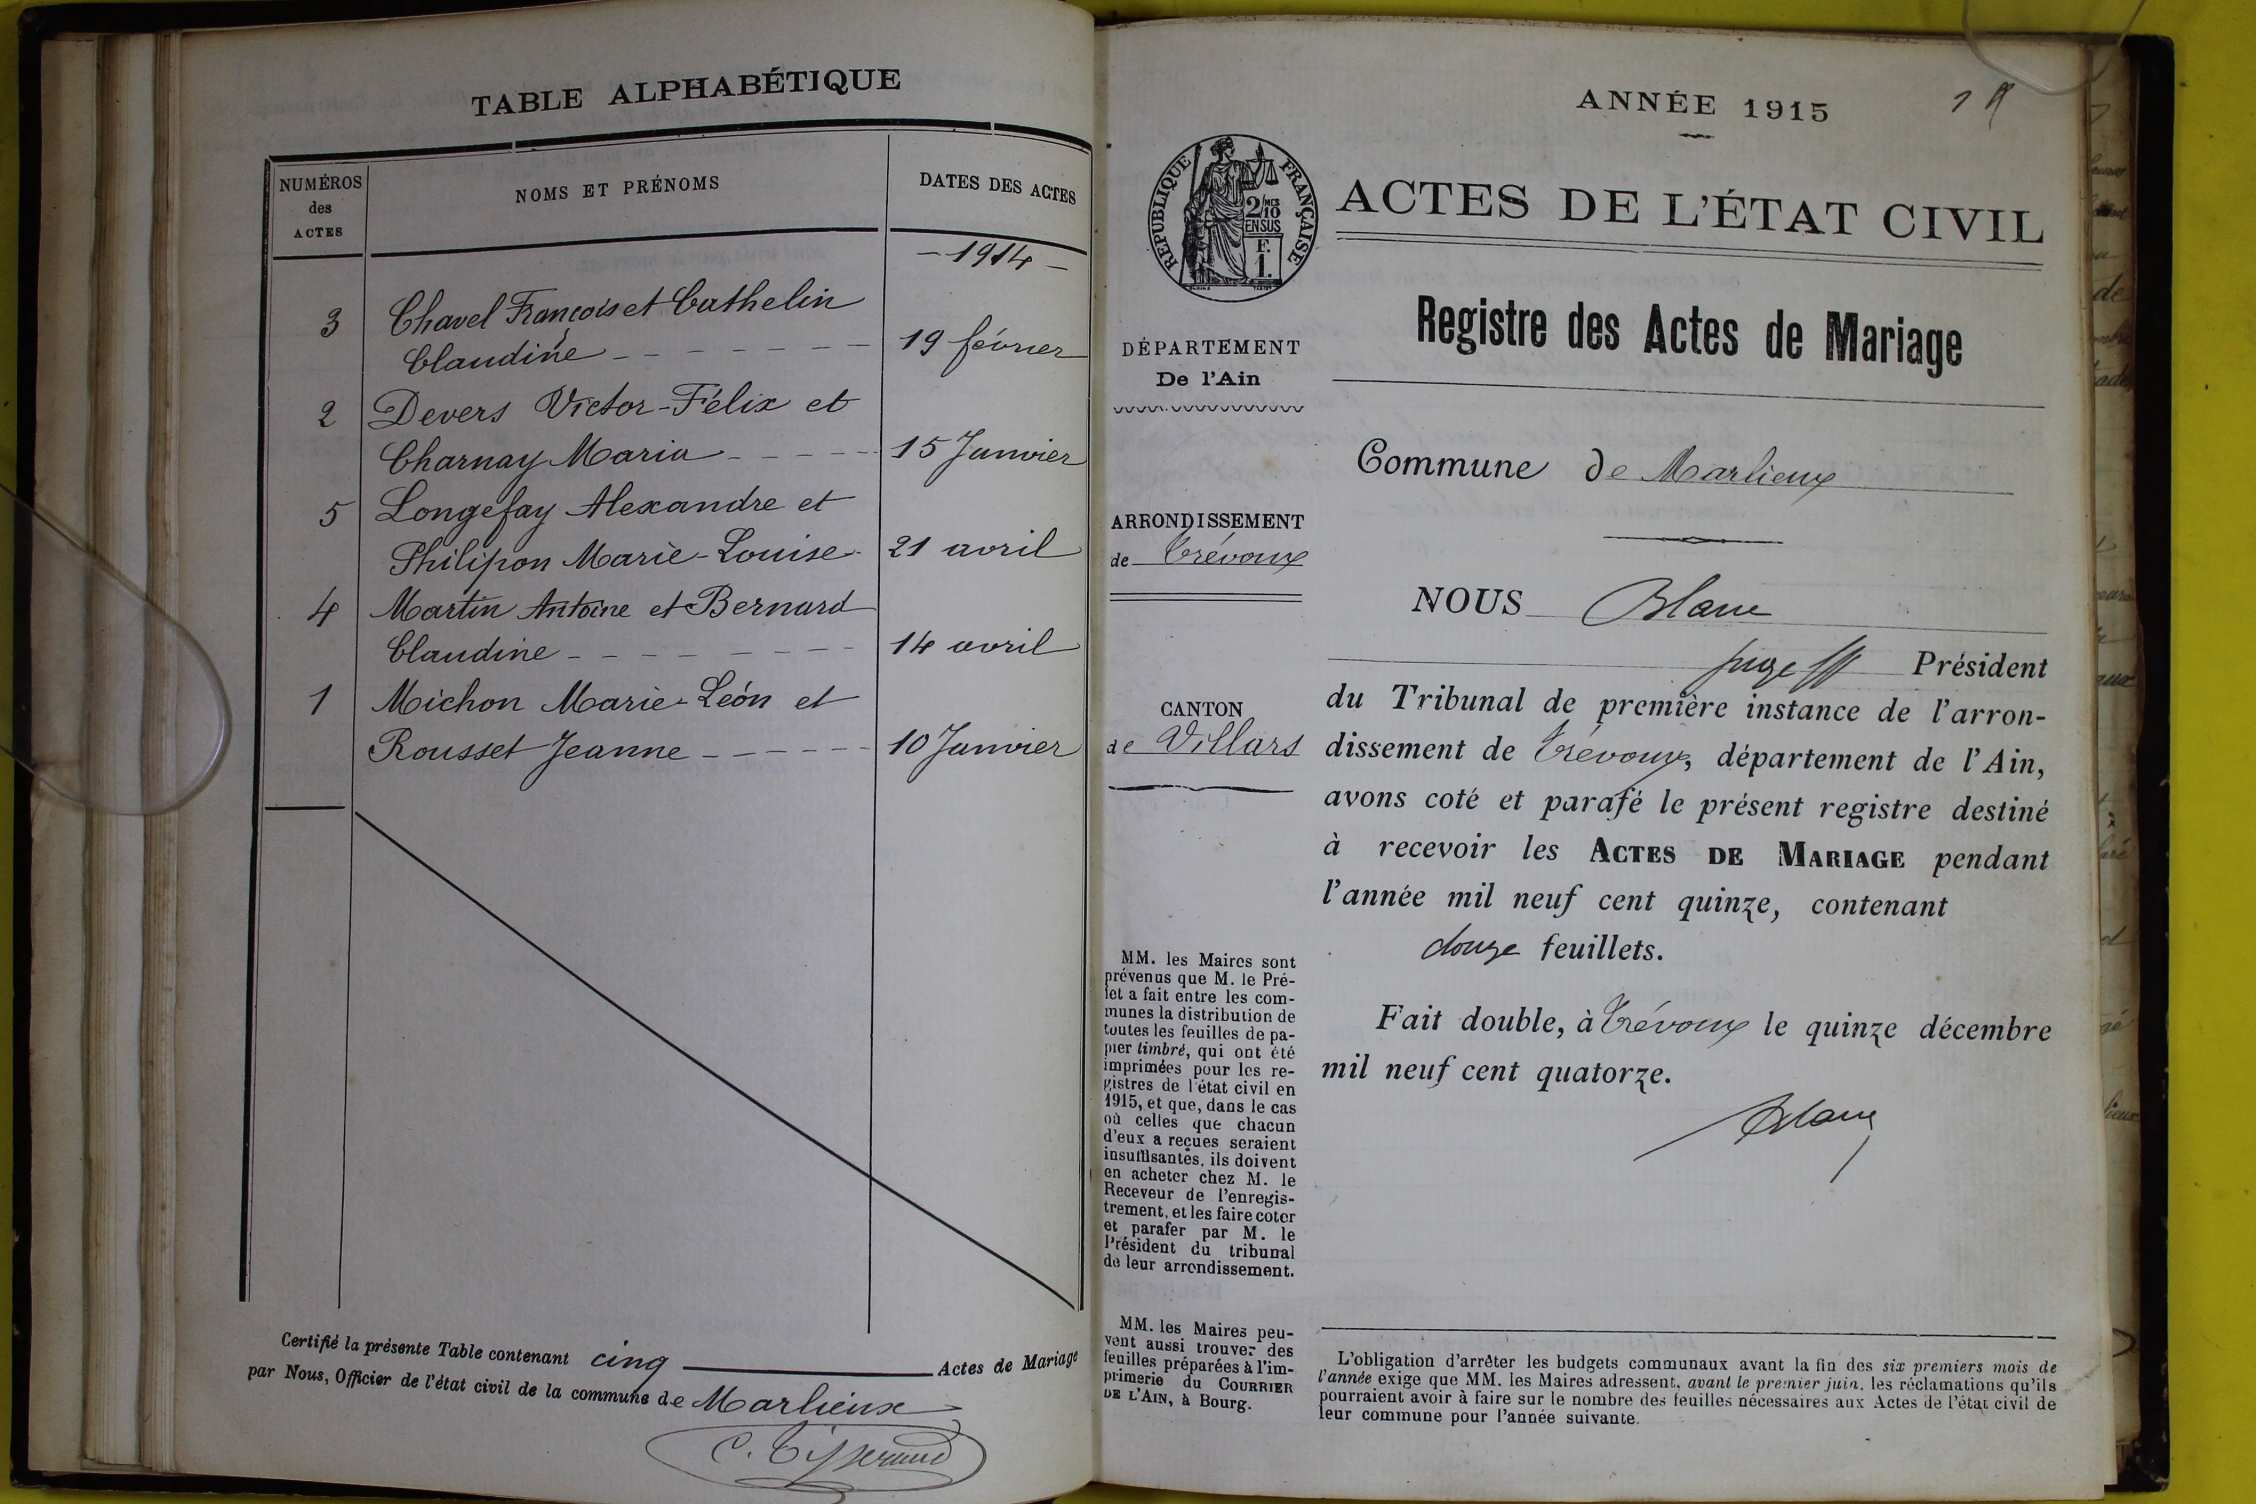 TABLE ALPHABÉTIQUE
NUMÉROS
des
ACTES
NOMS ET PRÉNOMS
DATES DES ACTES
- 1914 -
3 Chavel François et Cathelin
Claudine - - - - - - - 19 février
2 Devers Victor-Félix et
Charnay Maria - - - - - 15 Janvier
5 Longefay Alexandre et
Philipon Marie-Louise 21 avril
4 Martin Antoine et Bernard
Claudine - - - - - - - - 14 avril
1 Michon Marie-Léon et
Rousset Jeanne - - - - - - 10 Janvier
Certifié la présente Table contenant cinq Actes de Mariage
par Nous, Officier de l'état civil de la commune de Marlieux
C. Tisserand
ANNÉE 1915
RÉPUBLIQUE FRANÇAISE
2/10 MES
EN SUS
F.
1.
ACTES DE L'ÉTAT CIVIL
Registre des Actes de Mariage
DÉPARTEMENT
De l'Ain
ARRONDISSEMENT
de Trévoux
CANTON
de Villars
MM. les Maires sont
prévenus que M. le Pré-
fet a fait entre les com-
munes la distribution de
toutes les feuilles de pa-
pier timbré, qui ont été
imprimées pour les re-
gistres de l'état civil en
1915, et que, dans le cas
où celles que chacun
d'eux a reçues seraient
insuffisantes, ils doivent
en acheter chez M. le
Receveur de l'enregis-
trement, et les faire coter
et parafer par M. le
Président du tribunal
de leur arrondissement.
MM. les Maires peu-
vent aussi trouver des
feuilles préparées à l'im-
primerie du COURRIER
DE L'AIN, à Bourg.
Commune de Marlieux
NOUS Blanc
juge ff Président
du Tribunal de première instance de l'arron-
dissement de Trévoux, département de l'Ain,
avons coté et parafé le présent registre destiné
à recevoir les ACTES DE MARIAGE pendant
l'année mil neuf cent quinze, contenant
douze feuillets.
Fait double, à Trévoux le quinze décembre
mil neuf cent quatorze.
Blanc
L'obligation d'arrêter les budgets communaux avant la fin des six premiers mois de
l'année exige que MM. les Maires adressent, avant le premier juin, les réclamations qu'ils
pourraient avoir à faire sur le nombre des feuilles nécessaires aux Actes de l'état civil de
leur commune pour l'année suivante.